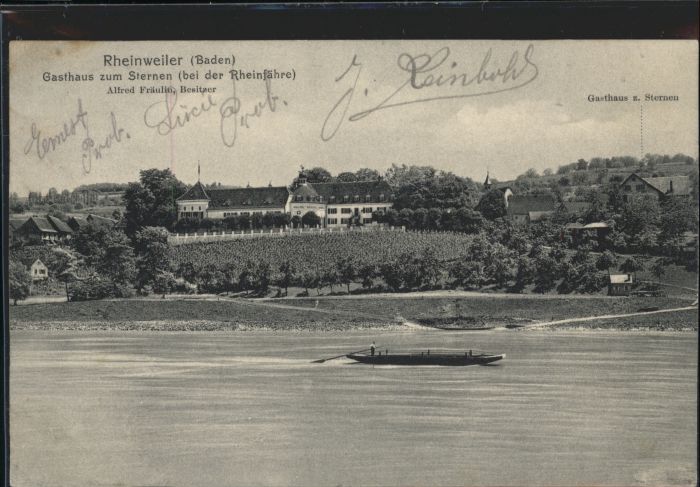 Rheinweiler (Baden)
Gasthaus zum Sternen (bei der Rheinfähre)
Alfred Fräulin, Besitzer
Gasthaus z. Sternen
Ernest Prob.
Lucie Prob.
J. Reinbold